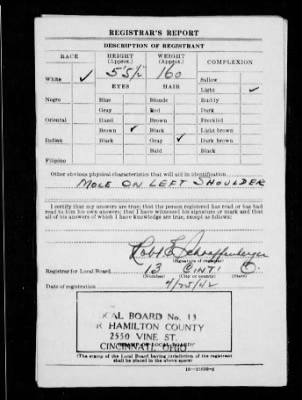 REGISTRAR'S REPORT
DESCRIPTION OF REGISTRANT
RACE HEIGHT (Approx.) WEIGHT (Approx.) COMPLEXION
5'5½" 160
White ✓ Sallow
EYES HAIR Light ✓
Negro Blue Blonde Ruddy
Gray Red Dark
Oriental Hazel Brown Freckled
Brown ✓ Black Light brown
Indian Black Gray ✓ Dark brown
Bald Black
Filipino
Other obvious physical characteristics that will aid in identification
MOLE ON LEFT SHOULDER
I certify that my answers are true; that the person registered has read or has had
read to him his own answers; that I have witnessed his signature or mark and that
all of his answers of which I have knowledge are true, except as follows:
Robt E.
(Signature of registrar)
Registrar for Local Board 13 CINTI O.
(Number) (City or county) (State)
Date of registration 4/25/42
CAL BOARD No. 13
HAMILTON COUNTY
2550 VINE ST.
CINCINNATI, OHIO
(STAMP OF LOCAL BOARD)
(The stamp of the Local Board having jurisdiction of the registrant
shall be placed in the above space)